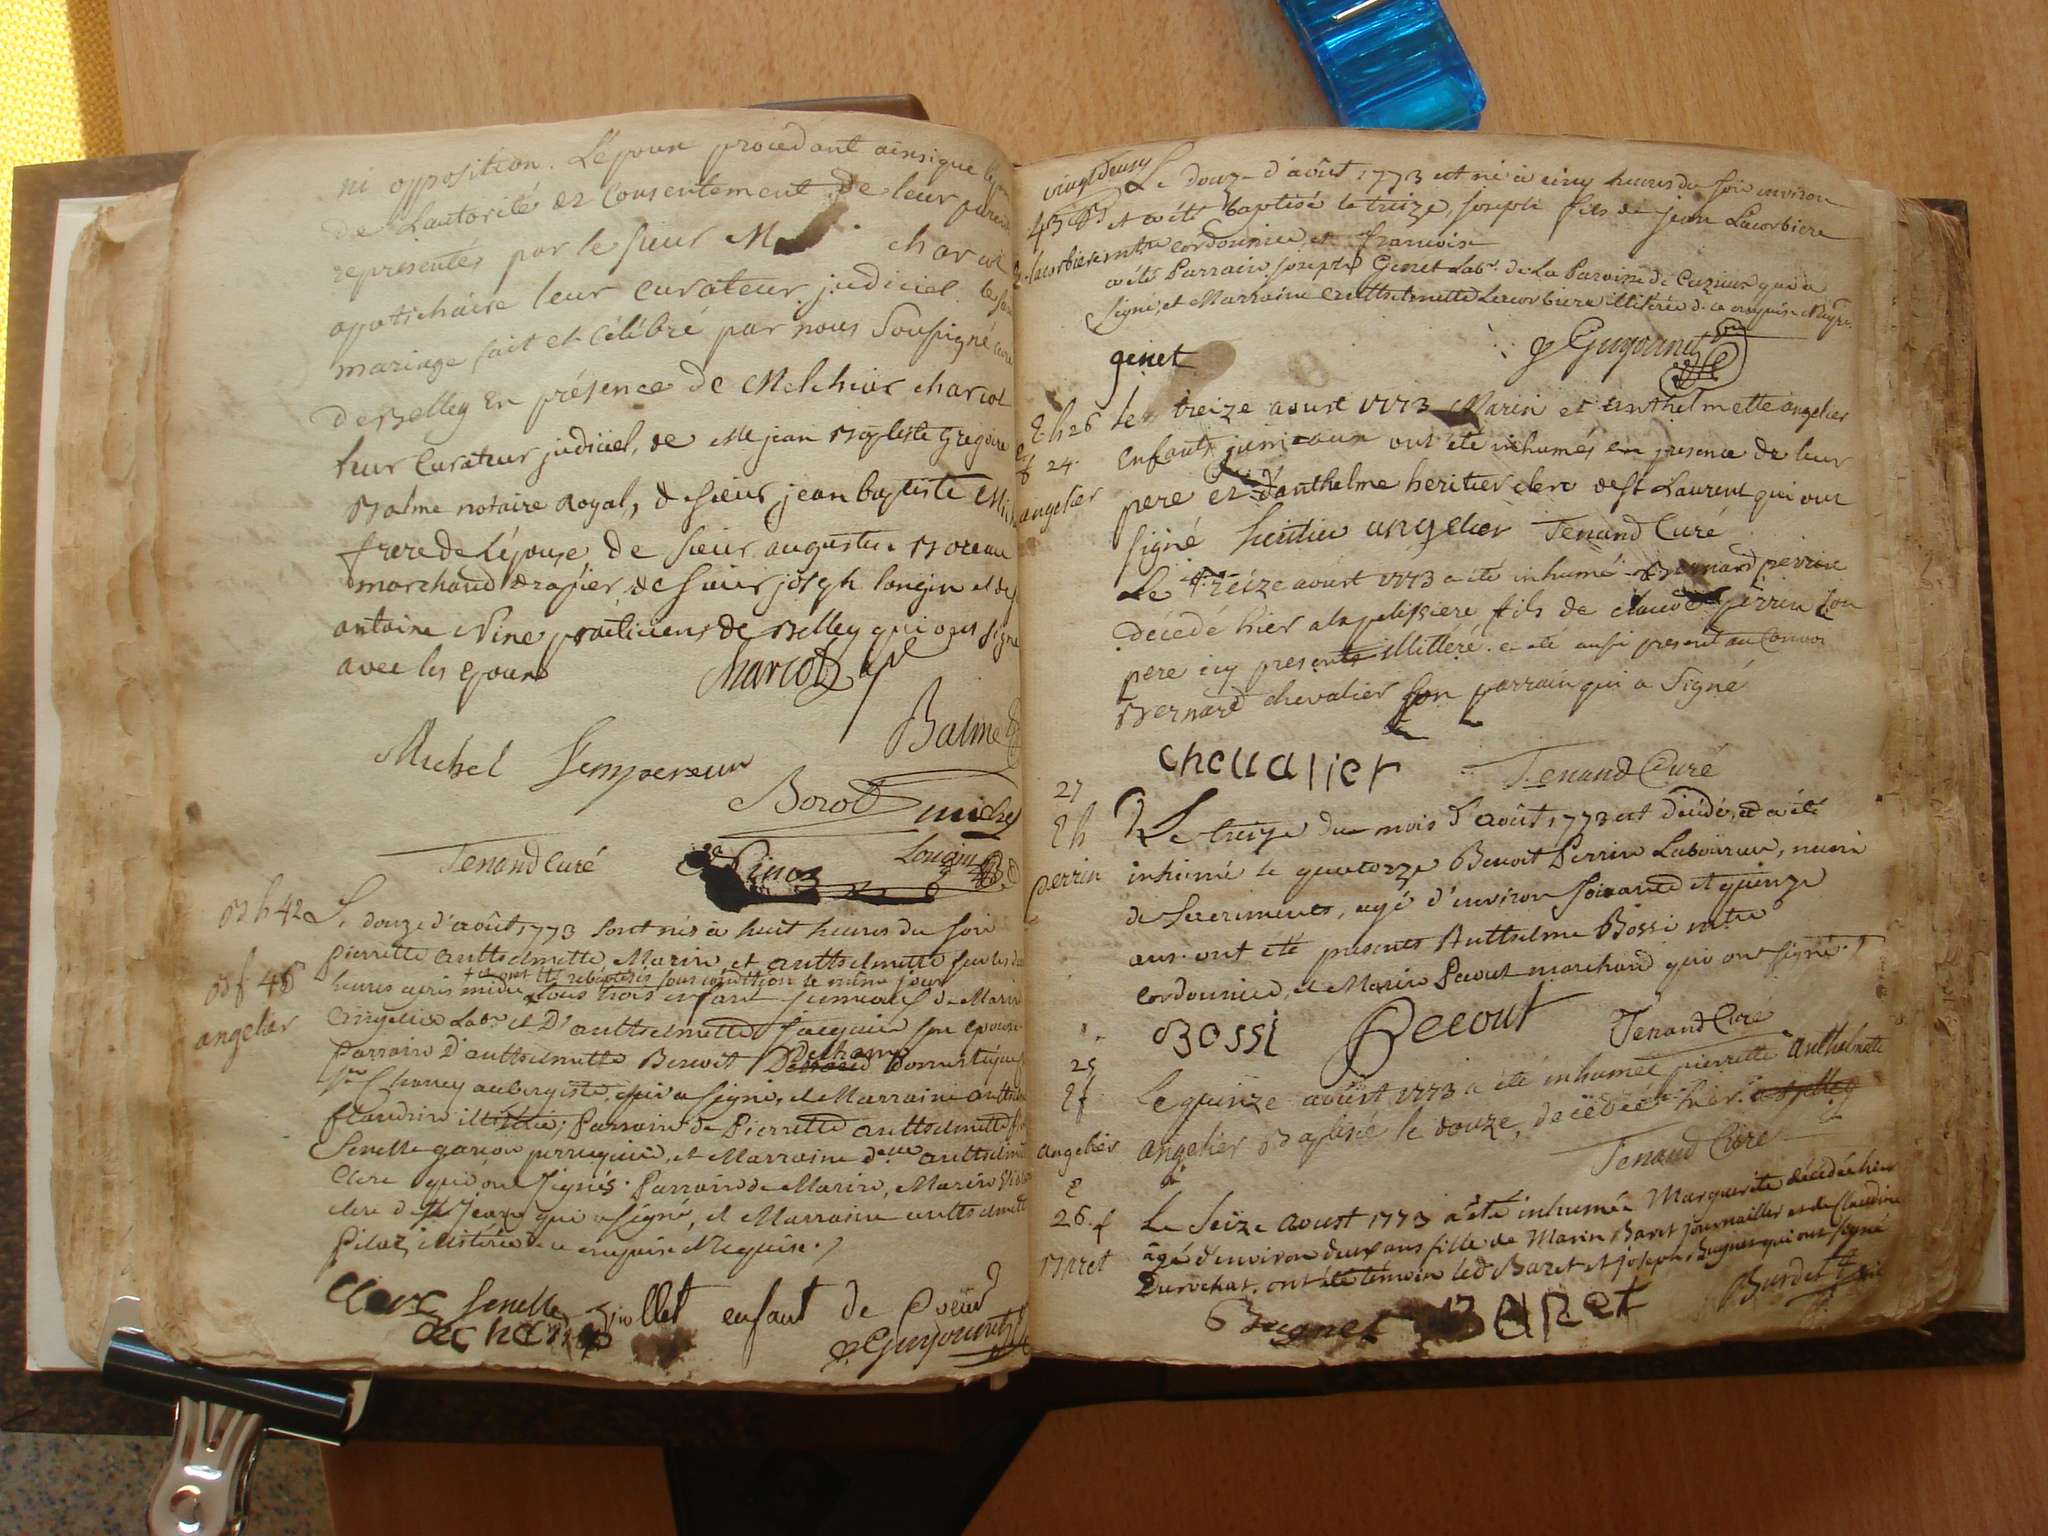 ni opposition. L'epoux procedant ainsi que
de Lautorité et Consentement de leur parents
representés par le sieur M charcot
apotichaire leur curateur judiciel
mariage fait et célébré par nous Soussigné curé
de Belley En présence de Melchior charcot
leur Curateur judiciel, de Me jean Baptiste Gregoire
Balme notaire Royal, de sieur jean baptiste
frere de Lépouse de sieur augustin
marchand drapier, de sieur joseph longin et de
antoine Nine praticiens de Belley qui ont signé
avec les epoux Charcot
Balme
Michel Lempereur
Tenand Curé
Longin
B h 42
B f 46
angelier
Le douze d'août 1773 sont nés à huit heures du soir
pierrette anthelmette Marin et anthelmette
heures après midi et ont été rebaptisés sous condition le même jour
tous trois enfans jumeaux de Marin
angelier Labr et D' anthelmette son epouse
Parrain D'anthelmette Benoit domestique
aubergiste, qui a signé, et Marraine
illitérée; Parrain de Pierrette anthelmette
Senelle garçon perruquier, et Marraine delle
Clerc qui ont signés. Parrain de Marin, Marin
clerc de St Jean qui a signé, et Marraine
illitérée de ce enquise et requise.
Clerc Senelle
enfant de Coeur
vingt deux
43
Lacorbiere
Le douze d'août 1773 est né à cinq heures du soir environ
et a été baptisé le treize, joseph fils de jean Lacorbiere
mtre cordonnier et françoise
a été Parrain joseph Genet Labr. de La Paroisse de qui a
signé, et Marraine Anthelmette Lacorbiere illitérée de ce enquise
genet
E h 26
24
angelier
Le treize aoust 1773 Marin et anthelmette angelier
Enfants jumeaux ont été inhumés en presence de leur
pere et d'anthelme heritier clerc de St Laurent qui ont
signé heritier angelier Tenand Curé
Le treize aoust 1773 a été inhumé Bernard perrin
decedé hier a la pelissiere fils de claude perrin son
pere icy present illitteré. a été aussi present au Convoi
Bernard chevalier son parrain qui a signé
chevalier Tenand Curé
27
E h
perrin
Le treize du mois d'août 1773 est décédé, et a été
inhumé le quatorze Benoit Perrin Laboureur, muni
de Sacrements, agé d'environ soixante et quinze
ans. ont été presents Anthelme Bossi mtre
cordonnier, et Marin Pecout marchand qui ont signé.
Bossi Pecout Tenand Curé
25
E f
angelier
Le quinze aoust 1773 a été inhumée pierrette anthelmette
angelier Baptisé le douze, decedée hier
Tenand Curé
26. f
Baret
Le Seize aoust 1773 a été inhumée Marguerite décédée hier
âgé d'environ deux ans fille de Marin Baret journailler et de claudine
Durochat. ont été temoin led Baret et joseph Bugnet qui ont signé
Bugnet Baret Burdet